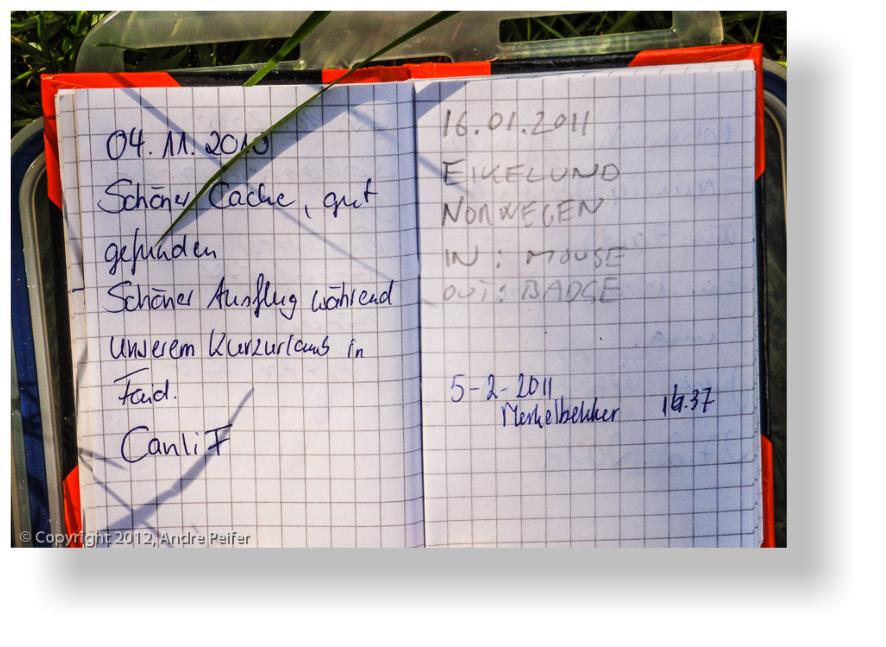 04.11.2010
Schöner Cache, gut
gefunden
Schöner Ausflug während
unserem Kurzurlaub in
Faid.
CanliF
16.01.2011
EIKELUND
NORWEGEN
IN : MOUSE
OUT : BADGE
5-2-2011
Merkelbekker 16.37
© Copyright 2012, Andre Peifer